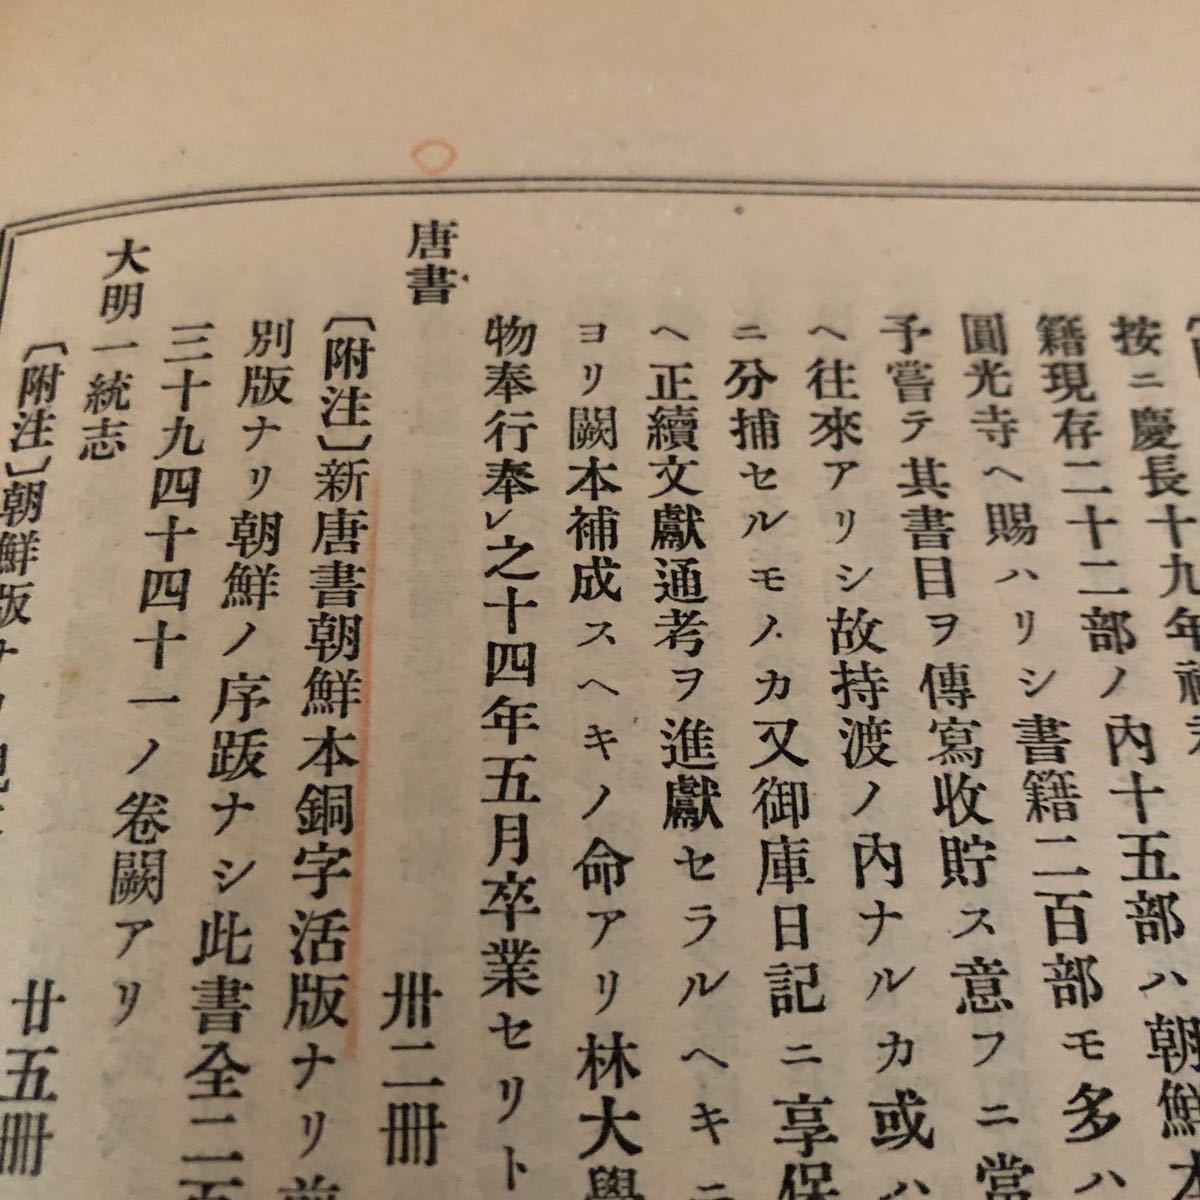 按ニ慶長十九年
籍現存二十二部ノ內十五部ハ朝鮮
圓光寺ヘ賜ハリシ書籍二百部モ多ハ
予嘗テ其書目ヲ傳寫收貯ス意フニ當
ヘ往來アリシ故持渡ノ內ナルカ或ハ
ニ分捕セルモノカ又御庫日記ニ享保
ヘ正續文獻通考ヲ進獻セラルヘキニ
ヨリ闕本補成スヘキノ命アリ林大學
物奉行奉レ之十四年五月卒業セリト
唐書 卅二冊
〔附注〕新唐書朝鮮本銅字活版ナリ前
別版ナリ朝鮮ノ序跋ナシ此書全二百
三十九四十四十一ノ卷闕アリ
大明一統志 廿五冊
〔附注〕朝鮮版ナリ